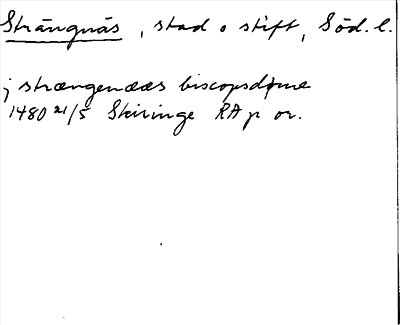 Strängnäs, stad o stift, Söd. l.
j strængenææs biscopsdøme
1480 21/5 Skiringe RAp or.